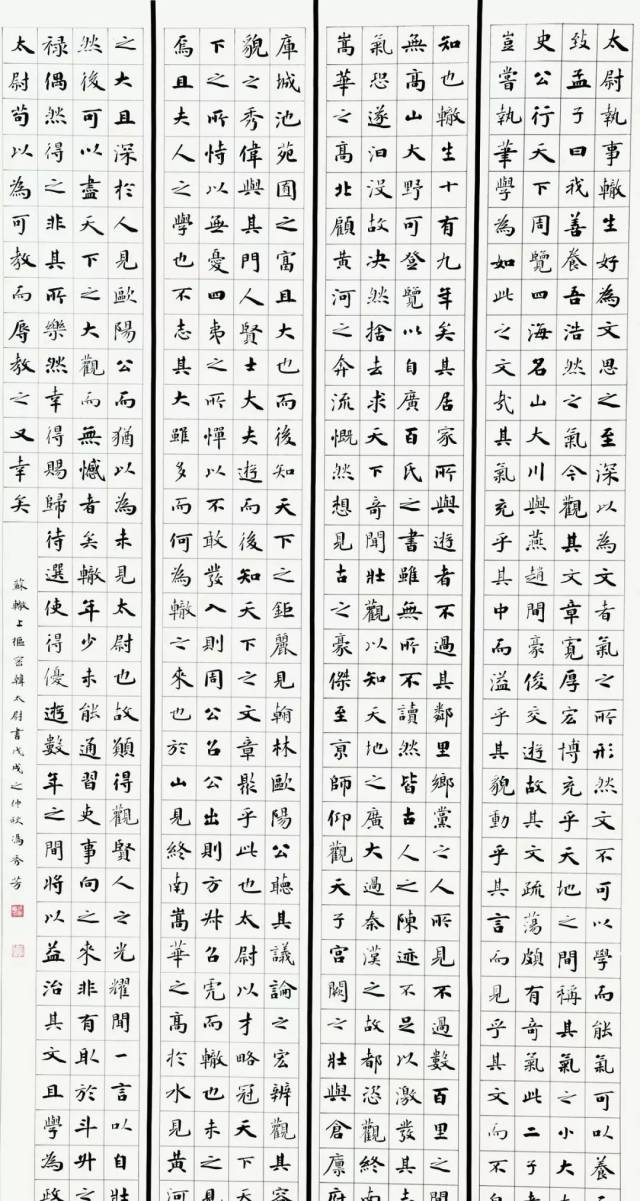 太尉執事轍生好為文思之至深以為文者氣之所形然文不可以學而能氣可以養
致孟子曰我善養吾浩然之氣今觀其文章寬厚宏博充乎天地之間稱其氣之小大
史公行天下周覽四海名山大川與燕趙間豪俊交遊故其文疏蕩頗有奇氣此二子者
豈嘗執筆學為如此之文哉其氣充乎其中而溢乎其貌動乎其言而見乎其文而不自
知也轍生十有九年矣其居家所與遊者不過其鄰里鄉黨之人所見不過數百里之間
無高山大野可登覽以自廣百氏之書雖無所不讀然皆古人之陳迹不足以激發其志
氣恐遂汩沒故決然捨去求天下奇聞壯觀以知天地之廣大過秦漢之故都恣觀終南
嵩華之高北顧黃河之奔流慨然想見古之豪傑至京師仰觀天子宮闕之壯與倉廩府
庫城池苑囿之富且大也而後知天下之鉅麗見翰林歐陽公聽其議論之宏辨觀其容
貌之秀偉與其門人賢士大夫遊而後知天下之文章聚乎此也太尉以才略冠天下天
下之所恃以無憂四夷之所憚以不敢發入則周公召公出則方叔召虎而轍也未之見
焉且夫人之學也不志其大雖多而何為轍之來也於山見終南嵩華之高於水見黃河
之大且深於人見歐陽公而猶以為未見太尉也故願得觀賢人之光耀聞一言以自壯
然後可以盡天下之大觀而無憾者矣轍年少未能通習吏事向之來非有取於斗升之
祿偶然得之非其所樂然幸得賜歸待選使得優遊數年之間將以益治其文且學為政
太尉苟以為可教而辱教之又幸矣
蘇轍上樞密韓太尉書戊戌之仲秋馮秀芳